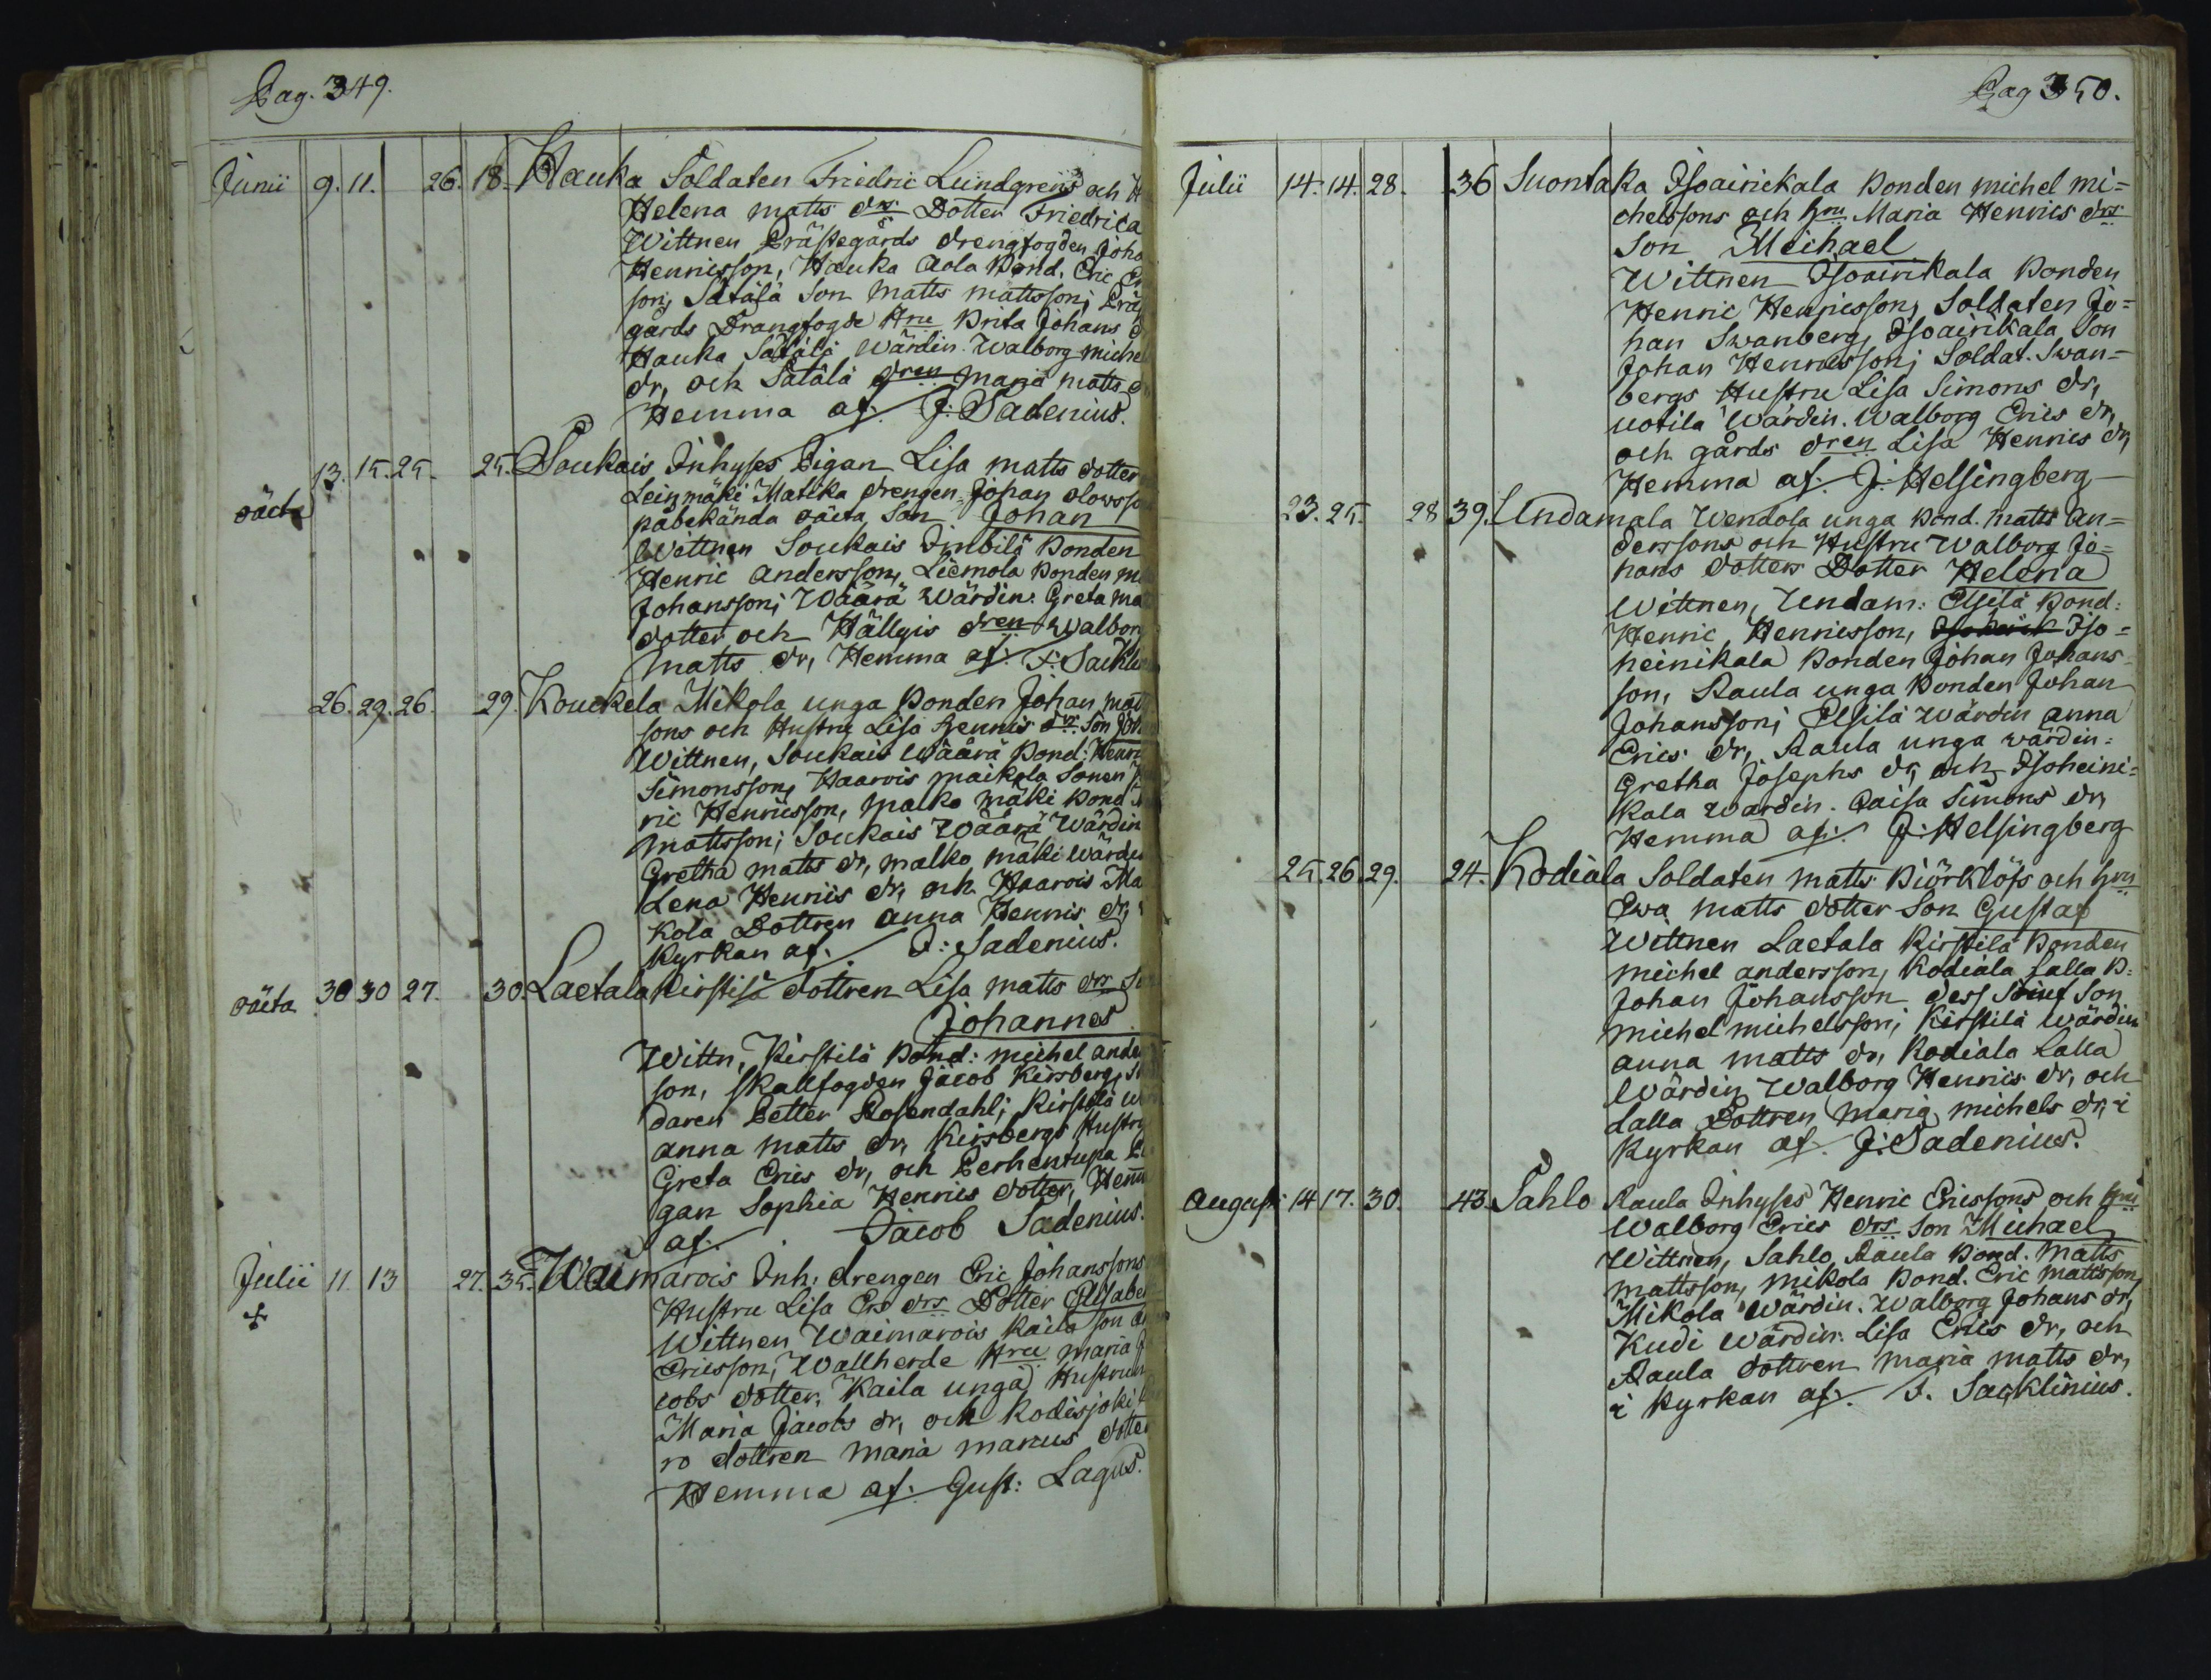 Pag. 349.
Junii 9. 11. 26. 18. Hauka Soldaten Friedric Lundgrens och
Helena matts drs Dotter Friedrica
Wittnen Prästegårds drengfogden Joha
Henricsson, Hauka Aola Bond. Eric
son, Sätälä Son Matts mattsson; Präst
gårds Drangfogde Hru Brita Johans
Hauka Sätälä Wärdin. Walborg miche
dr, och Sätälä dren maria matts
Hemma af. J: Sadenius.
13. 15. 25. 25. Soukais Inhyses Pigan Lisa matts dotter
oäcta
Leinmäki Matika drengen Johan olovsso
påbekända oäcta Son Johan
Wittnen Soukais Inbilä Bonden
Henric andersson, Liemola Bonden
Johansson; Wäärä Wärdin. Greta ma
dotter och Hällgis dren Walbor
matts dr, Hemma af. F: Sackli
26. 29. 26. 29. Kouckela Mikola unga Bonden Johan mat
sons och Hustru Lisa Henrics drs Son Joh
Wittnen, Soukais Wäärä Bond: Henri
Simonsson, Haarois maikola Sonen
ric Henricsson, malko mäki Bond
mattsson; Soukais Wäärä Wärdin
Gretha matts dr, malko mäki wärdin
Lena Henrics dr, och Haarois Ma
kola Dottren anna Henrics dr,
Kyrkan af. J: Sadenius.
oäcta 30 30 27. 30. Laetala Kirstilä dottren Lisa matts drs So
Johannes
Wittn, Kirstilä Bond: michel ande
son, Skallfogden Jacob Kirsberg,
daren Petter Rosendahl; Kirstilä
anna matts dr, Kirsbergs Hustru
Greta Erics dr, och Perhentupa
gan Sophia Henrics dotter, Hem
af. Jacob Sadenius.
Julii 11. 13 27. 35. Waimarois Inh. drengen Eric Johanssons
Hustru Lisa Ers drs Dotter Elisabe
Wittnen Waimarois Kaila son
Ericsson, Wallherde Hru maria
cobs dotter, Kaila unga Hustrun
Maria Jacobs dr, och Kodisjoki
ro dottren maria marcus dotter
Hemma af. Gust: Lagus.
Pag 350.
Julii 14. 14. 28. 36 Suontaka Isoairickala Bonden michel mi=
chelssons och hru Maria Henrics drs
Son Michael
Wittnen Isoairikala Bonden
Henric Henricsson, Soldaten Jo=
han Swanberg, Isoairikala Son
Johan Henricsson; Soldat. Swan=
bergs Hustru Lisa Simons dr,
uotila Wärdin. Walborg Erics dr,
och gårds dren Lisa Henrics dr,
Hemma af. J: Helsingberg
23. 25. 28 39. Undamala Wendola unga Bond. matts An=
derssons och Hustru Walborg Jo=
hans dotters Dotter Helena
Wittnen, Undam: Elsilä Bond:
Henric Henricsson, Iso=
heinikala Bonden Johan Johans=
son, Raula unga Bonden Johan
Johansson; Elsilä Wärdin anna
Erics dr, Raula unga wärdin:
Gretha Josephs dr, och Isoheini=
kala wärdin. Caisa Simons dr,
Hemma af. J: Helsingberg
25. 26. 29. 24. Kodiala Soldaten matts Biörklöfs och hru
Ewa matts dotter Son Gustaf
Wittnen Laetala Kirstilä Bonden
michel andersson, Kodiala Lalla B:
Johan Johansson dess Son
michel michelsson; Kirstilä Wärdin
anna matts dr, Kodiala Lalla
Wärdin Walborg Henrics dr, och
Lalla Dottren maria michels dr, i
Kyrkan af. J: Sadenius.
Augusti 14 17. 30. 43. Sahlo Raula Inhyses Henric Ericssons och hru
Walborg Erics drs Son Michael
Wittnen, Sahlo Raula Bond. Matts
mattsson, Mikola Bond. Eric mattsson,
Mikola Wärdin. Walborg Johans dr,
Kudi Wärdin. Lisa Erics dr, och
Raula dottren maria matts dr,
i Kyrkan af. F. Sacklinius.